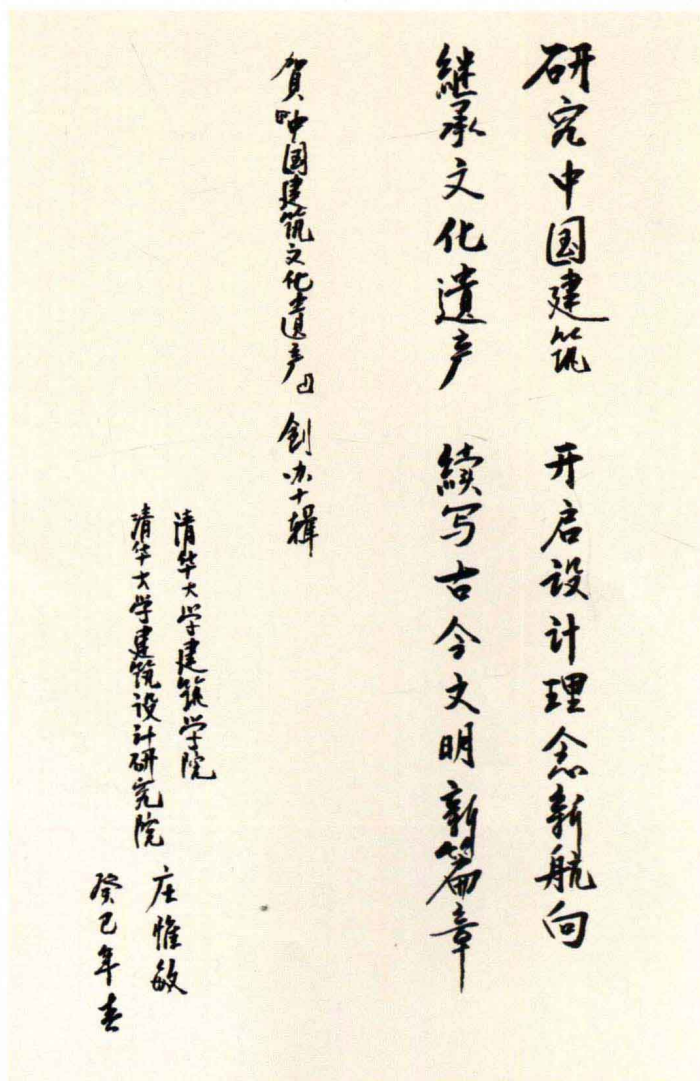 研究中国建筑 开启设计理念新航向
继承文化遗产 續写古今文明新篇章
賀《中国建筑文化遗产》创办十辑
清华大学建筑学院
清华大学建筑设计研究院
庄惟敏
癸巳年春